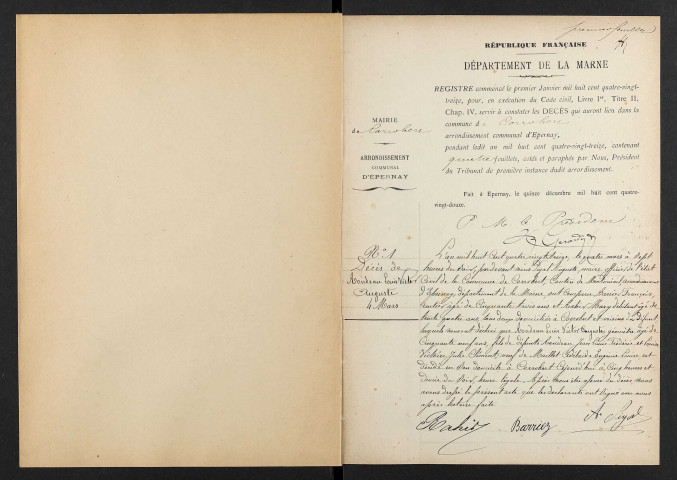 RÉPUBLIQUE FRANÇAISE
DÉPARTEMENT DE LA MARNE
REGISTRE commencé le premier Janvier mil huit cent quatre-vingt-
treize, pour, en exécution du Code civil, Livre Ier, Titre II,
Chap. IV, servir à constater les DÉCÈS qui auront lieu dans la
commune de Corrobert
arrondissement communal d'Epernay,
pendant ledit an mil huit cent quatre-vingt-treize, contenant
quatre feuillets, cotés et paraphés par Nous, Président
du Tribunal de première instance dudit arrondissement.
Fait à Epernay, le quinze décembre mil huit cent quatre-
vingt-douze.
P. M. le Président
MAIRIE
de Corrobert
ARRONDISSEMENT
COMMUNAL
D'ÉPERNAY
No 1
Décès de
Louis Victor
Auguste
4 Mars
L'an mil huit cent quatre vingt treize, le quatre mars à sept
heures du soir, par devant nous Auguste, maire officier de l'état
civil de la Commune de Corrobert, Canton de Montmirail, arrondissement
d'Epernay, département de la Marne, ont comparu François,
âgé de cinquante trois ans et
trente quatre ans, tous deux domiciliés à Corrobert et voisins du Défunt
lesquels nous ont déclaré que Victor Auguste, âgé de
cinquante neuf ans, fils de défunts Jean Louis et
Julie Clément, veuf de est
décédé en son domicile à Corrobert aujourd'hui à cinq heures et
demie du soir, heure légale. Après nous être assuré du décès nous
avons dressé le présent acte que les déclarants ont signé avec nous
après lecture faite.
Rahir Barriez